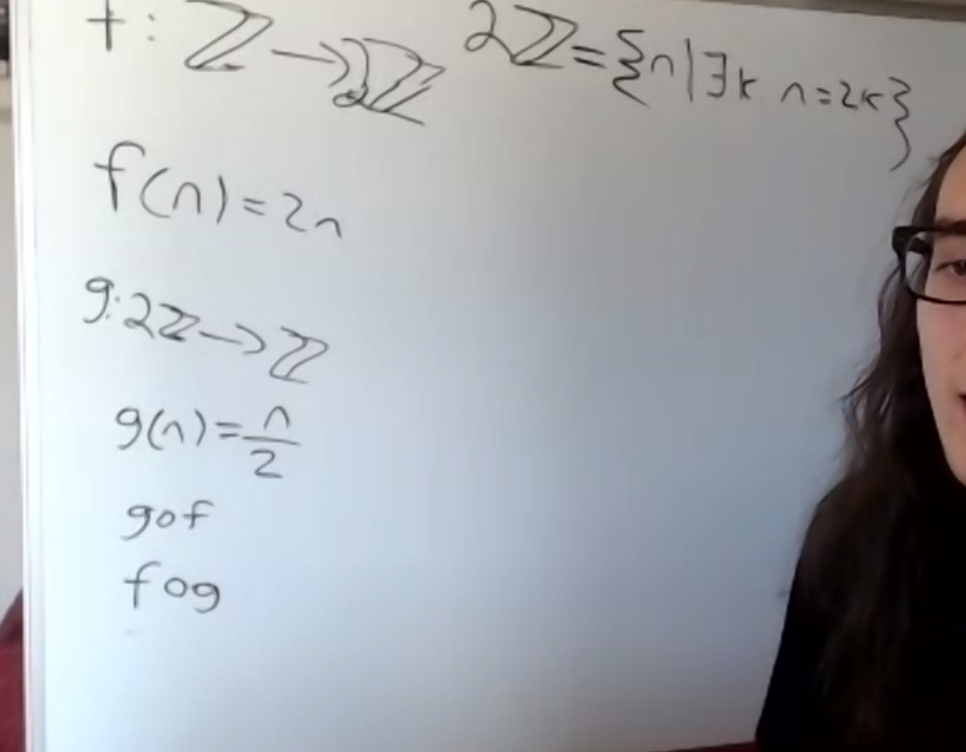 f: ℤ→2ℤ 2ℤ={n|∃k. n=2k}
f(n)=2n
g:2ℤ→ℤ
g(n)=n/2
gof
fog